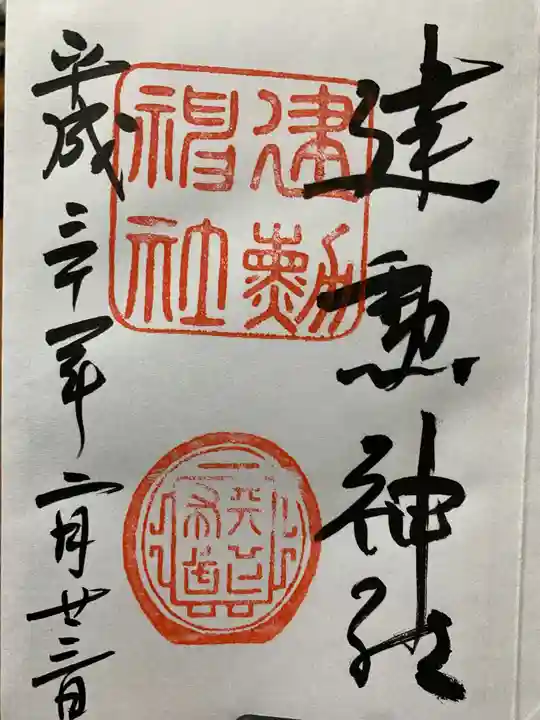 建勲神社
建勲
神社
天下布武
平成三十年二月廿三日